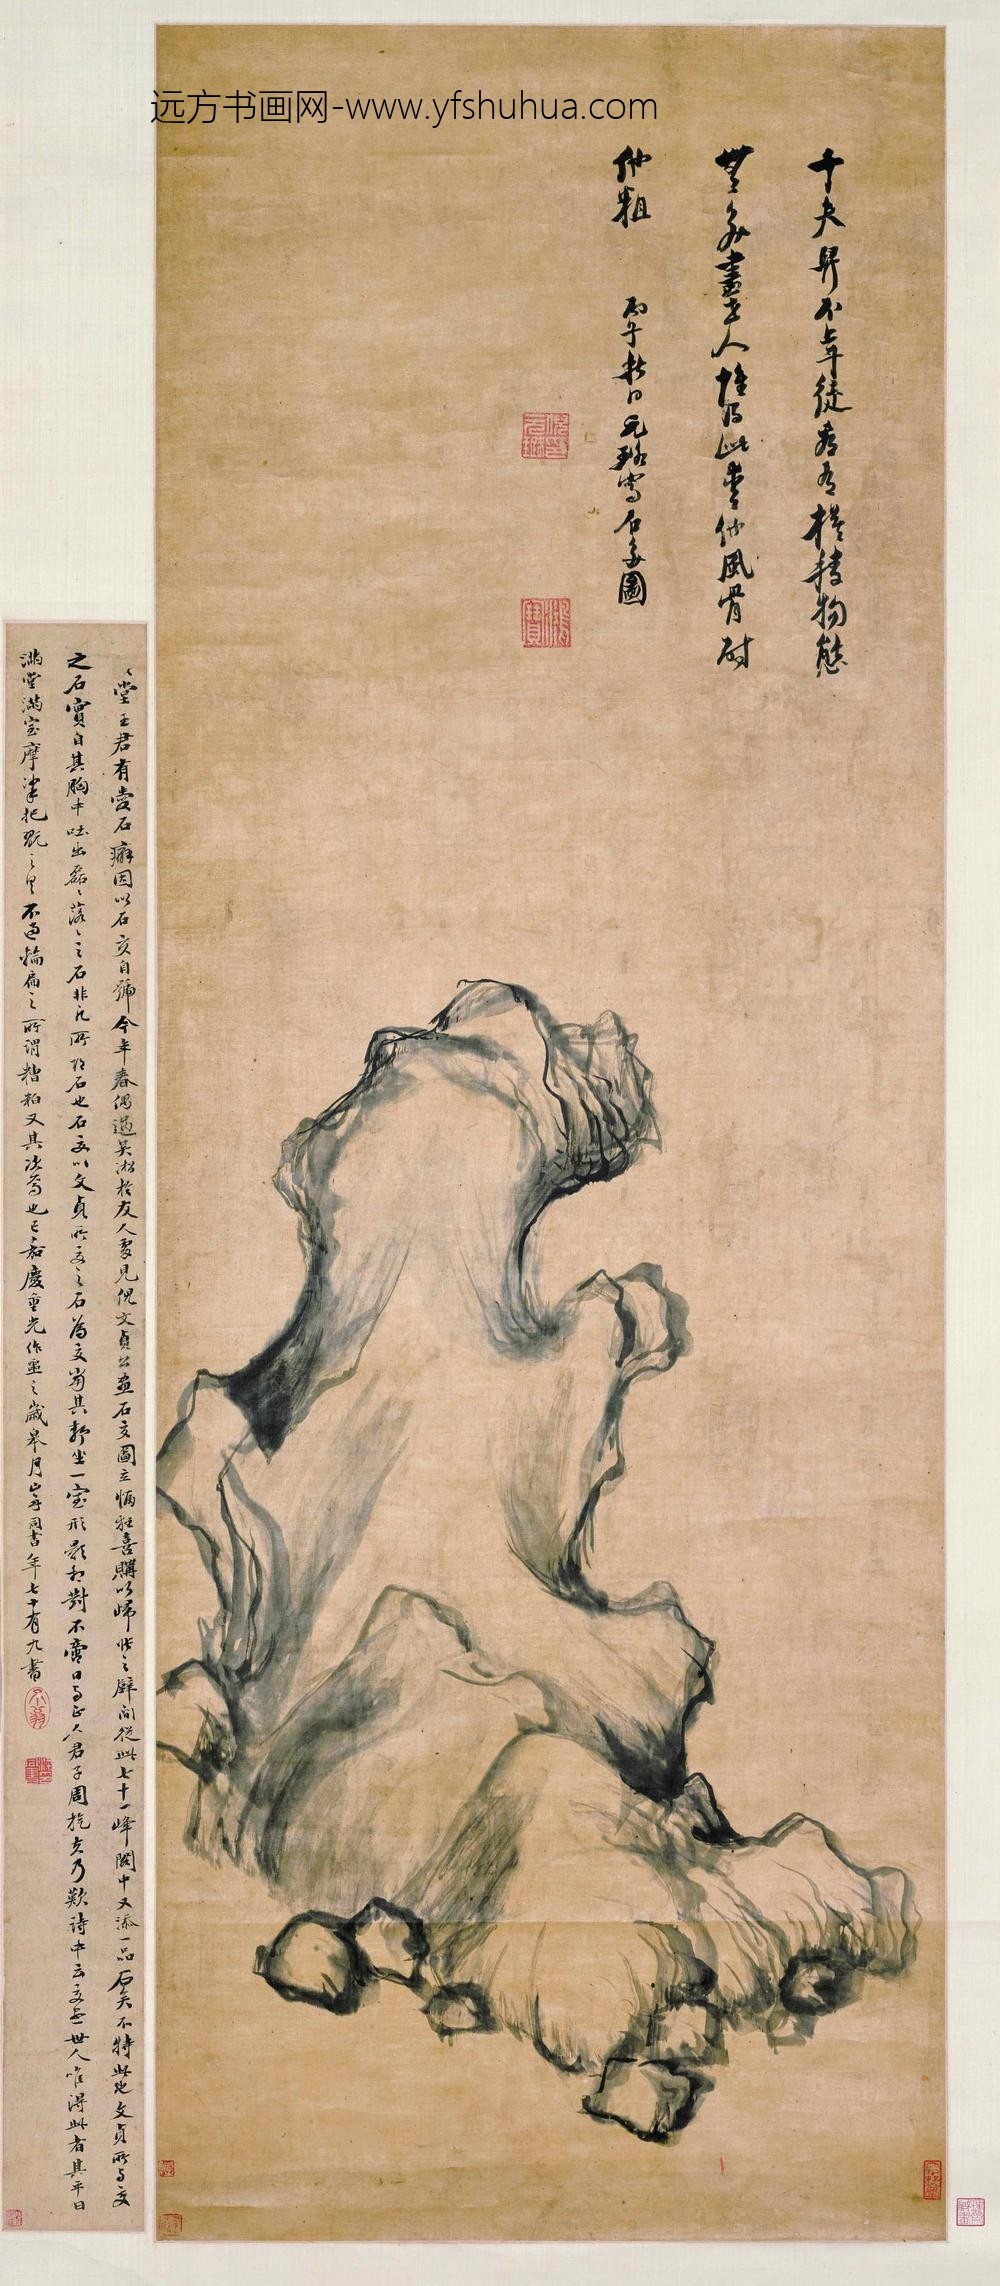 远方书画网-www.yfshuhua.com
千夫舁不牵徒为有模棱物態
無多盡世人惟取此丈他風骨耐
他粗
丙子秋日元璐寫石交圖
堂王君有愛石癖因以石交自號今年春偶過吳淞於友人處見倪文貞公畫石交圖立幅狂喜購以歸張之壁間從此七十一峰閣中又添一品石矣不特此也文貞所與交
之石實自其胸中吐出磊落之石非凡所謂石也石交以文貞所交之石為交當其靜坐一室形影相對不啻日與正人君子周旋矣乃歎詩中云交無世人唯得此者其平日
滿堂滿室摩挲把翫之具不過輪扁之所謂糟粕又其次焉也已嘉慶重光作噩之歲皋月山舟同書年七十有九書